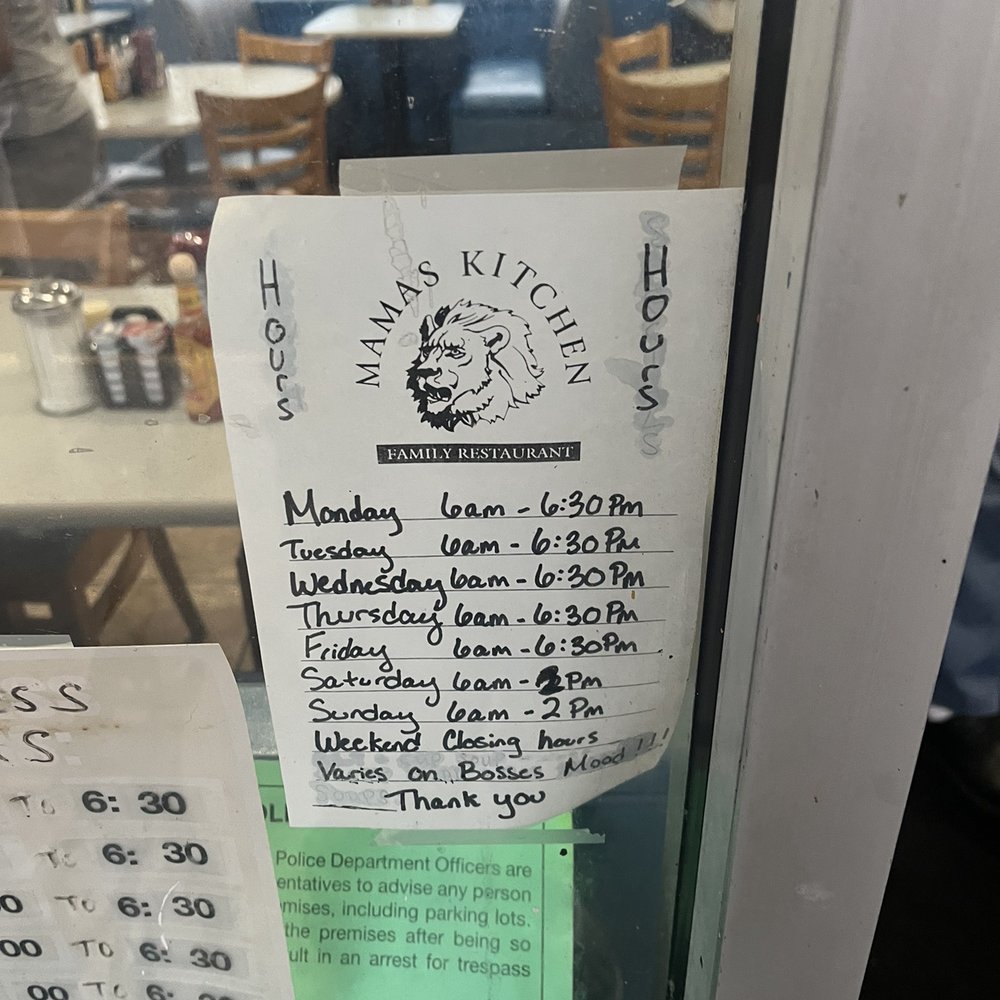 MAMAS KITCHEN
Hours
Hours
FAMILY RESTAURANT
Monday 6am - 6:30 Pm
Tuesday 6am - 6:30 Pm
Wednesday 6am - 6:30 Pm
Thursday 6am - 6:30 Pm
Friday 6am - 6:30 Pm
Saturday 6am - 2 Pm
Sunday 6am - 2 Pm
Weekend Closing hours
Varies on Bosses Mood!!!
Thank you
SS
S
TO 6: 30
TO 6: 30
0 TO 6: 30
00 TO 6: 30
00 TO 6:
Police Department Officers are
entatives to advise any person
mises, including parking lots.
the premises after being so
ult in an arrest for trespass